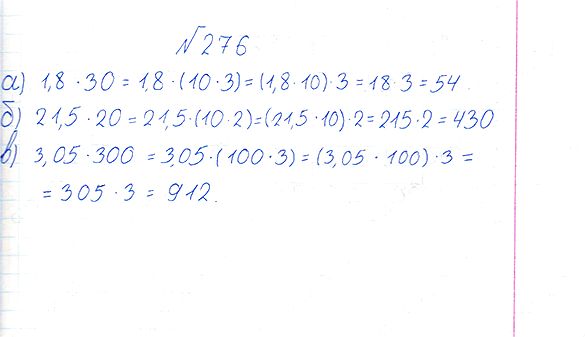 №276
а) 1,8 · 30 = 1,8 · (10 · 3) = (1,8 · 10) · 3 = 18 · 3 = 54.
б) 21,5 · 20 = 21,5 · (10 · 2) = (21,5 · 10) · 2 = 215 · 2 = 430
в) 3,05 · 300 = 3,05 · (100 · 3) = (3,05 · 100) · 3 =
= 305 · 3 = 912.